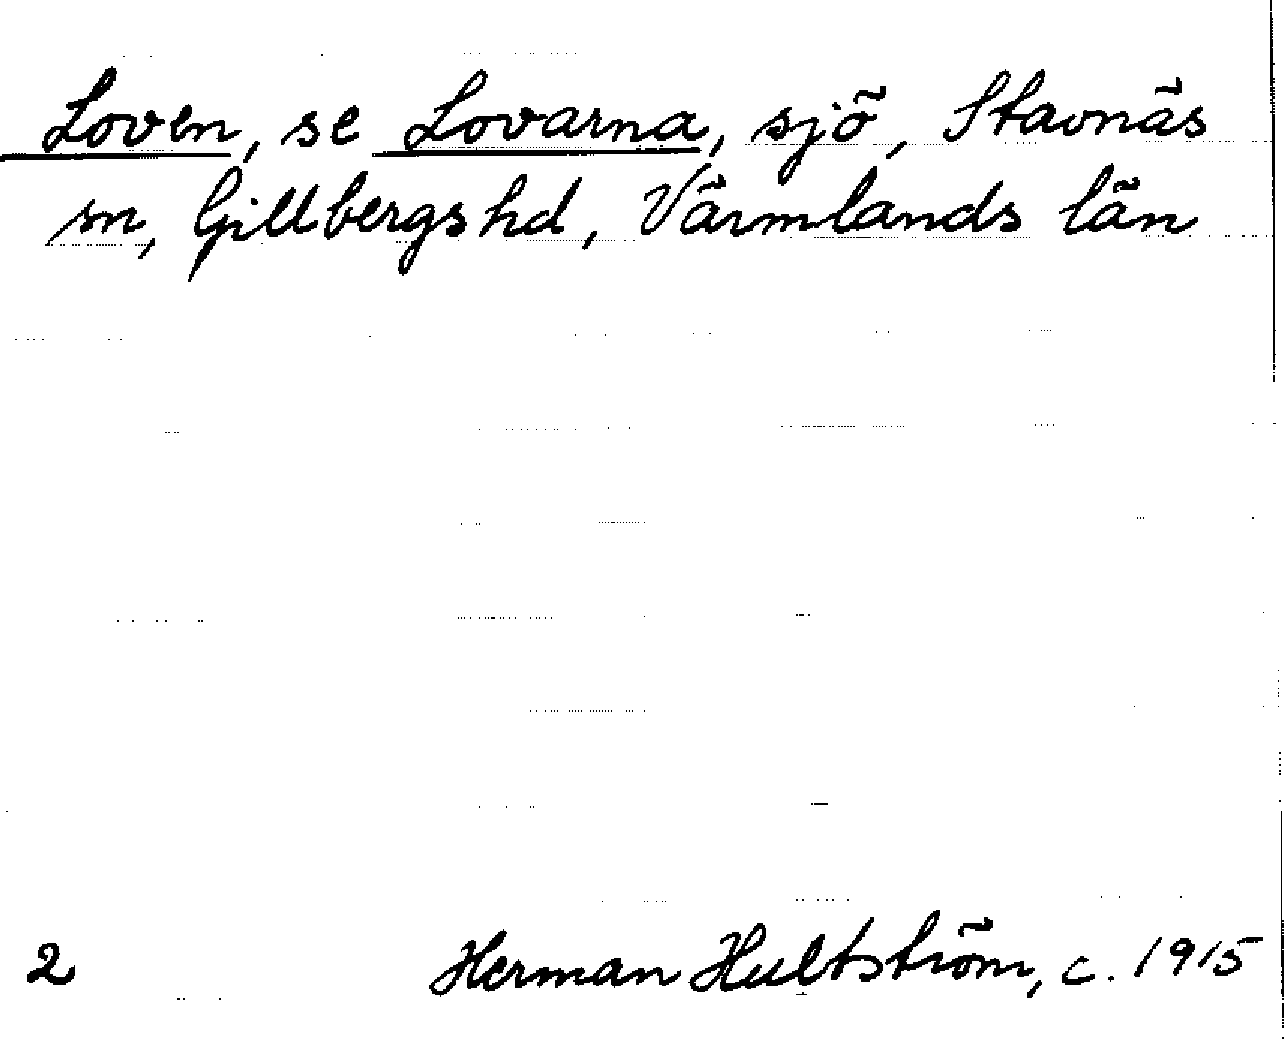 Loven, se Lovarna, sjö, Stavnäs
sn, Gillbergs hd, Värmlands län
2 Herman Hultström, c. 1915